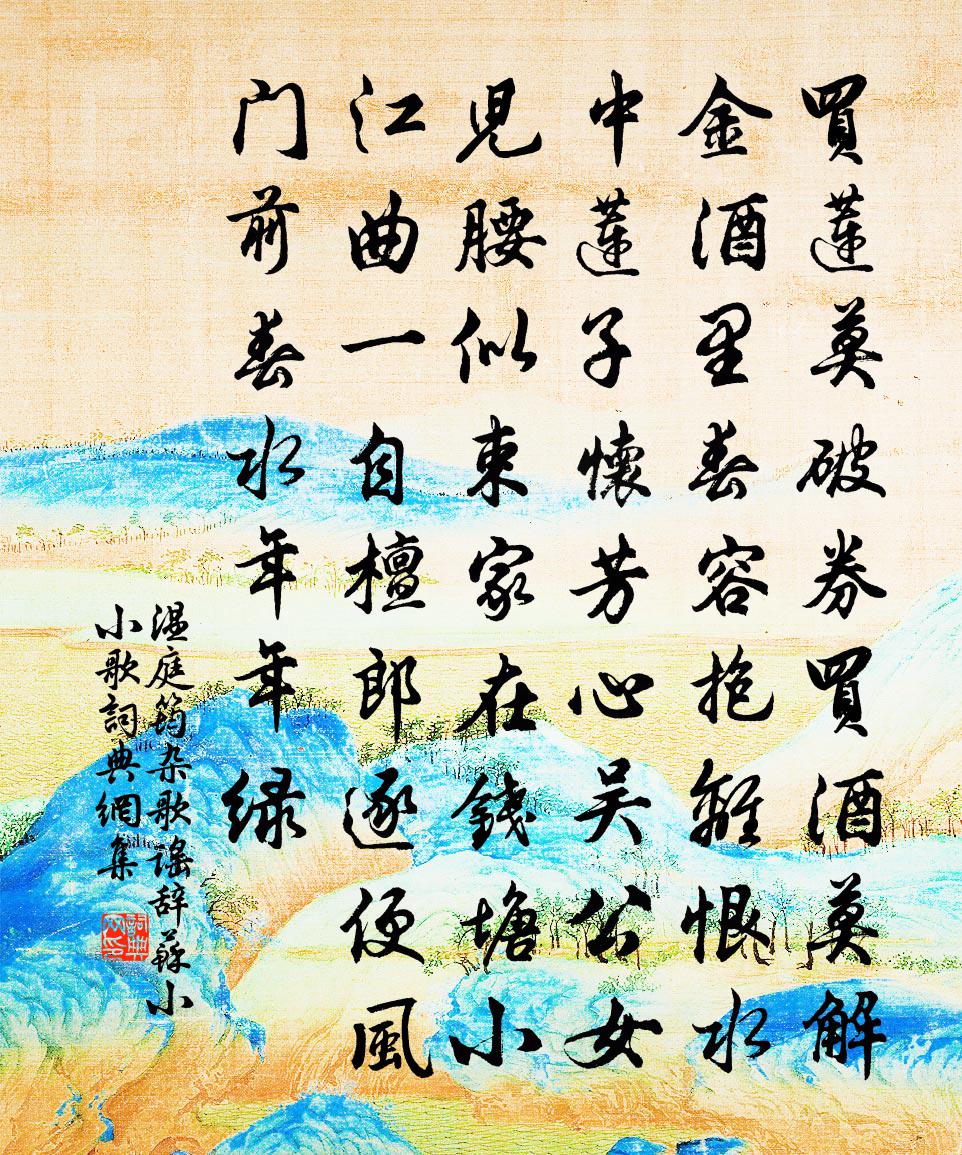 買蓮莫破券買酒莫解
金酒里春容抱離恨水
中蓮子懷芳心吴公女
兒腰似束家在錢塘小
江曲一自檀郎逐便風
门前春水年年绿
温庭筠杂歌谣辞蘇小
小歌詞典網集